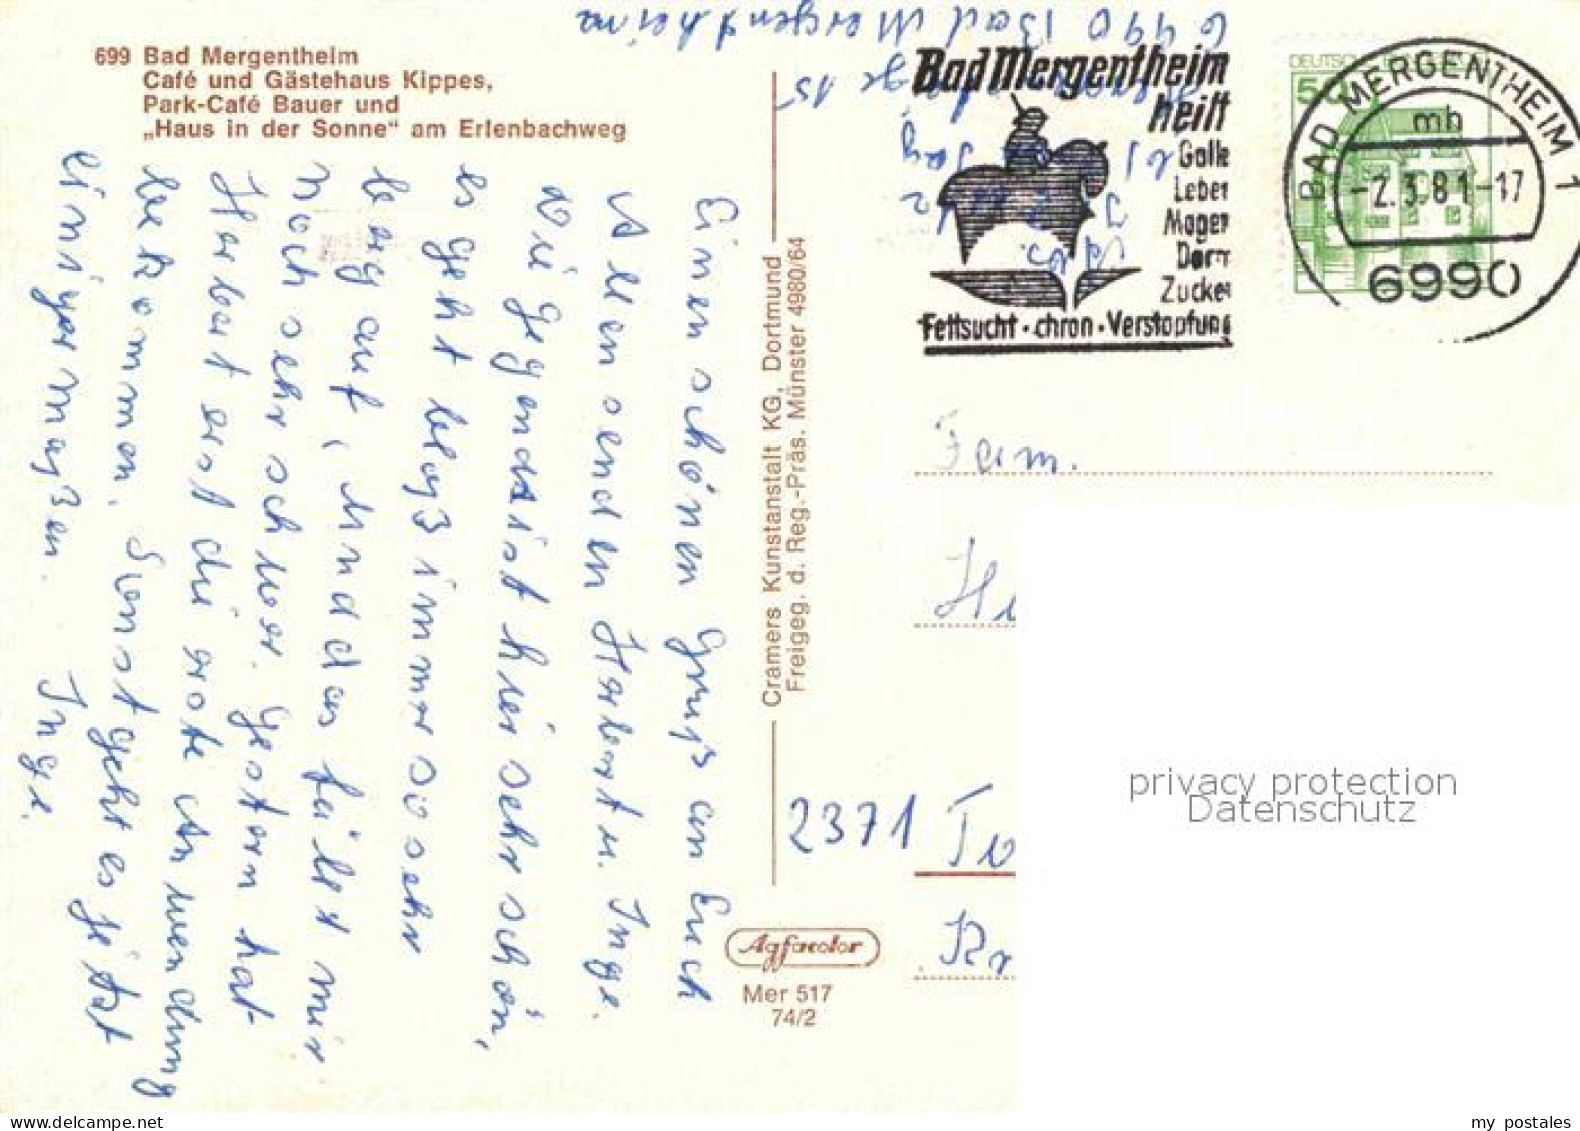 699 Bad Mergentheim
Café und Gästehaus Kippes,
Park-Café Bauer und
„Haus in der Sonne“ am Erlenbachweg
Einen schönen Gruß an Euch
Allen senden Herbert u. Inge.
Die Gegend ist hier sehr schön,
es geht bloß immer so sehr
berg auf, und das fällt mir
noch sehr schwer. Gestern hat
Herbert erst die rote Anwendung
bekommen. Sonst geht es jetzt
einigermaßen. Inge.
Cramers Kunstanstalt KG, Dortmund
Freigeg. d. Reg.-Präs. Münster 4980/64
Agfacolor
Mer 517
74/2
6990 Bad Mergentheim
15
Bad Mergentheim
heilt
Galle
Leber
Magen
Darm
Zucker
Fettsucht · chron · Verstopfung
BAD MERGENTHEIM 1
mh
-2.3.81-17
6990
50
Fam.
2371
privacy protection
Datenschutz
my postales